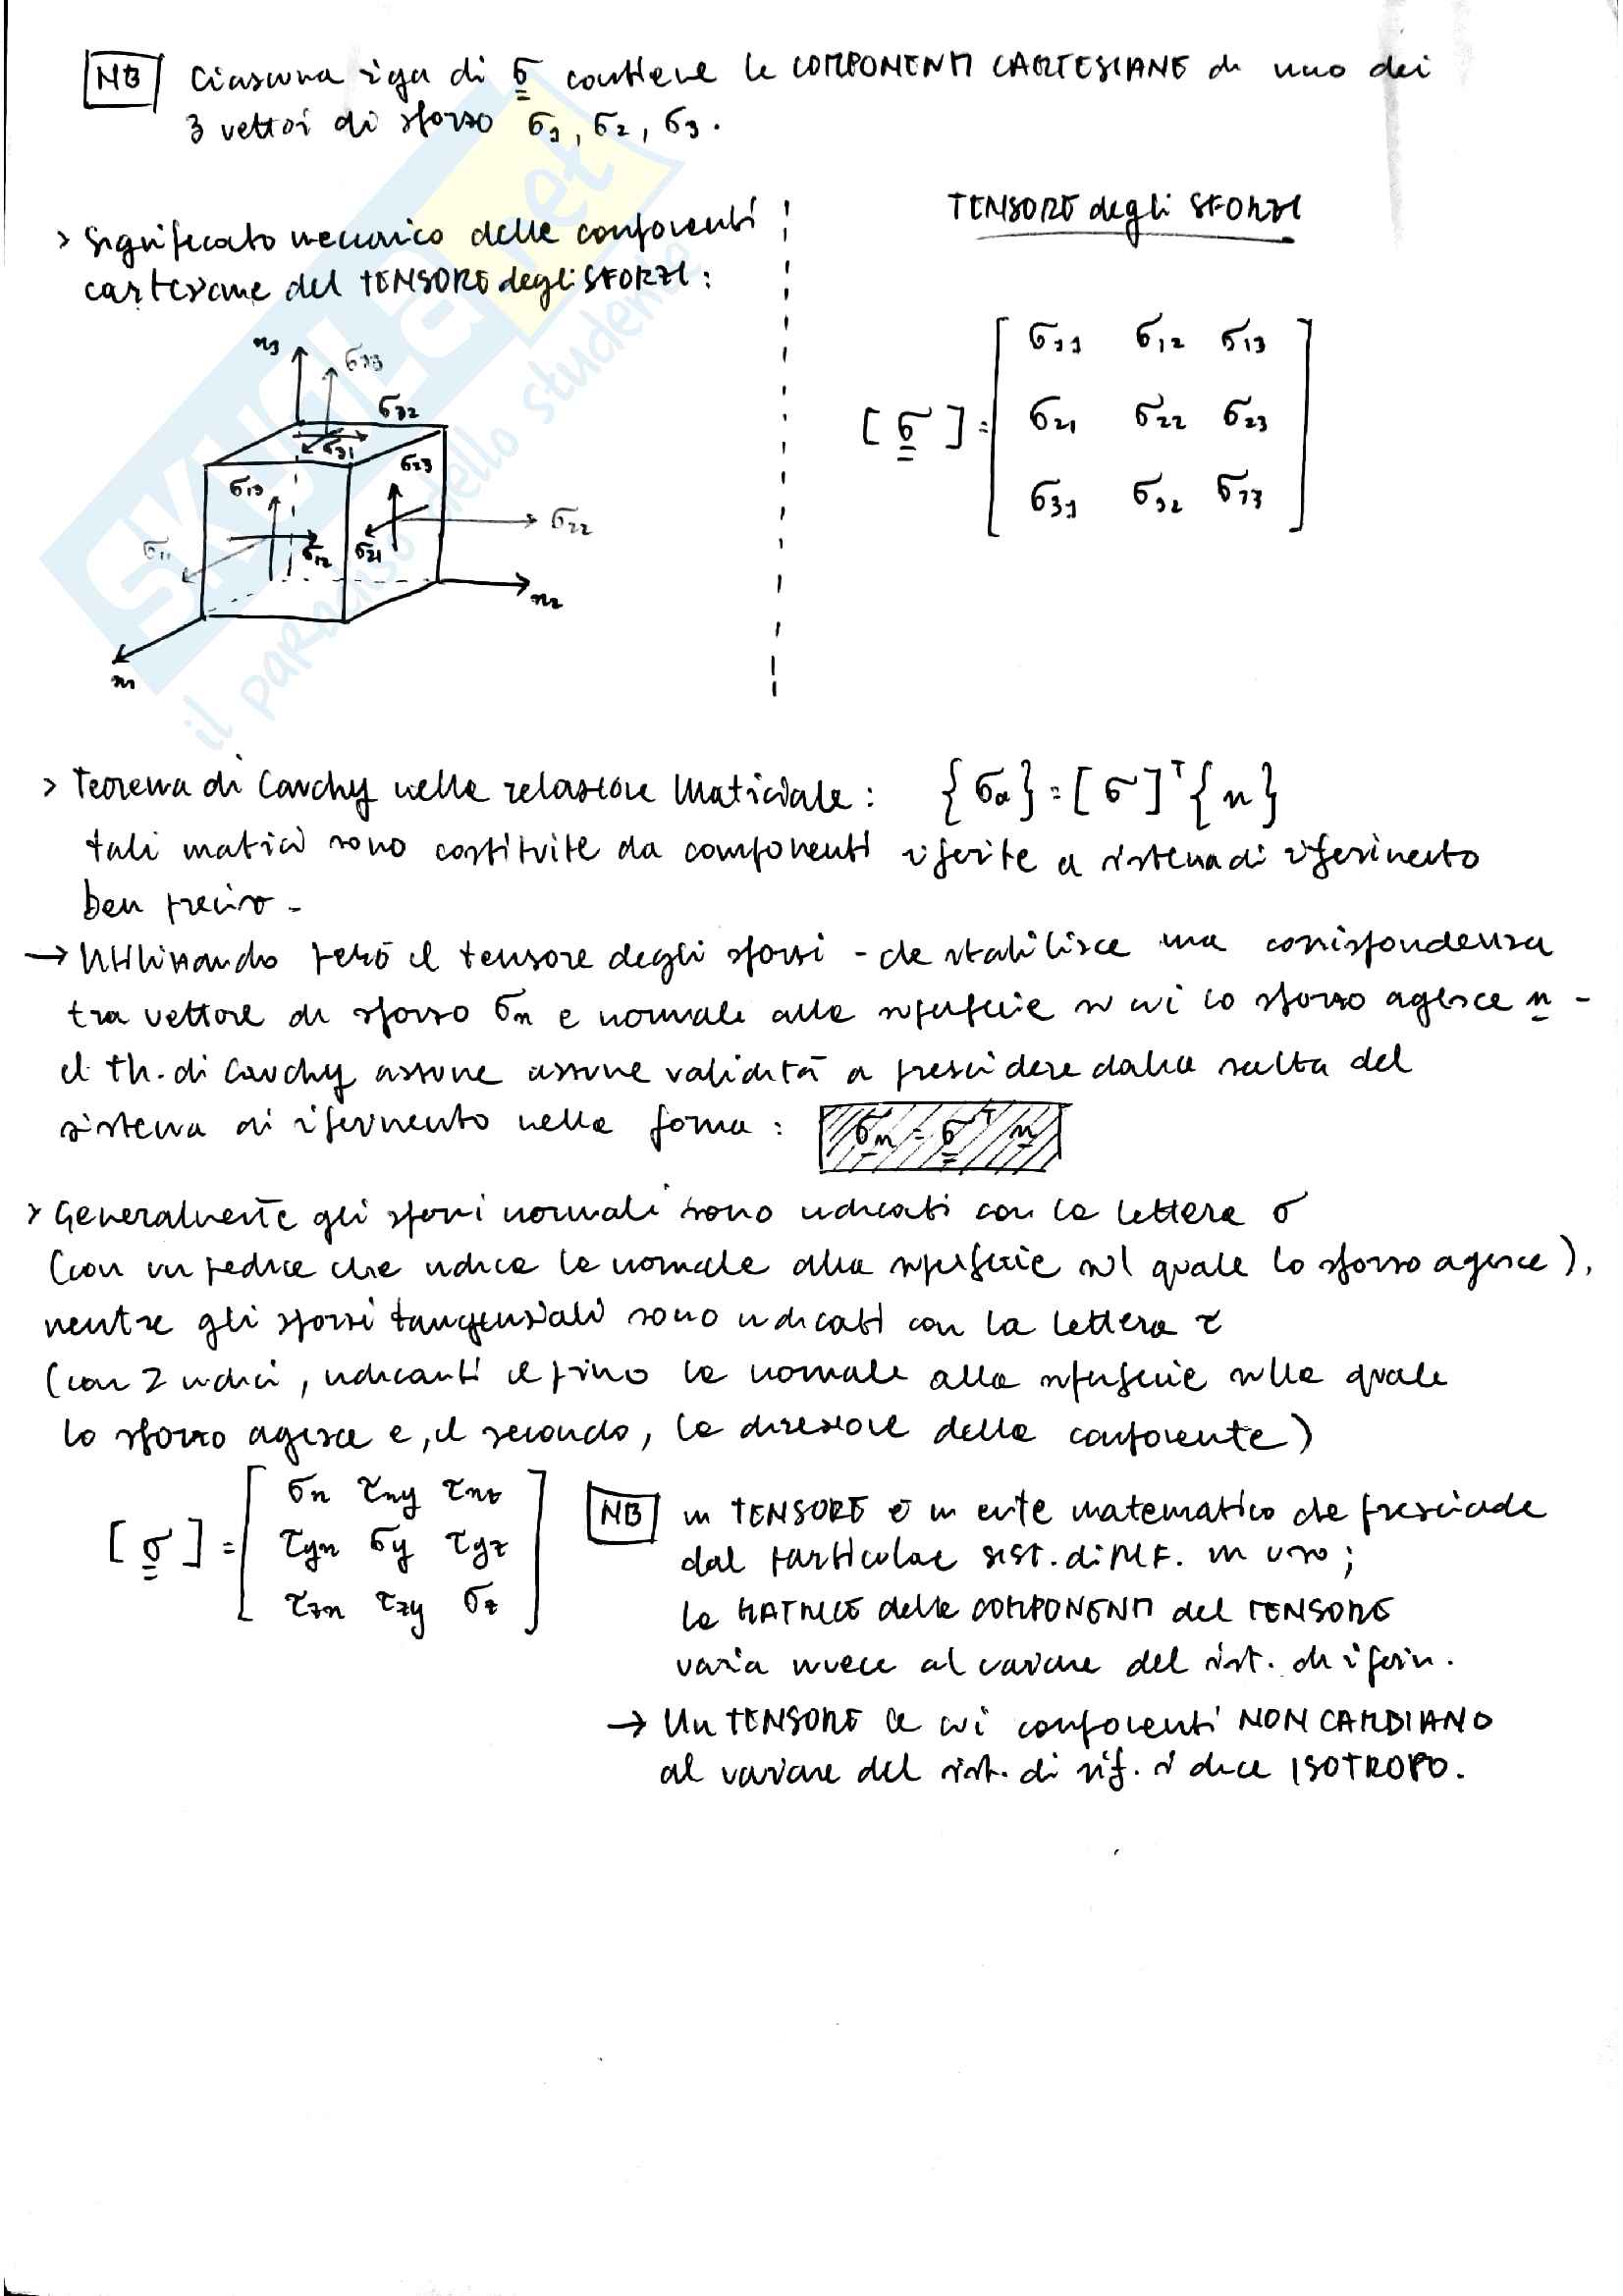 NB Ciascuna riga di σ contiene le COMPONENTI CARTESIANE di uno dei
3 vettori di sforzo σ1, σ2, σ3.
> Significato meccanico delle componenti
cartesiane del TENSORE degli SFORZI:
TENSORE degli SFORZI
x3
σ33
σ32
σ31
σ23
σ13
σ22
σ11
σ12
σ21
x2
x1
[σ] = [ σ11 σ12 σ13
σ21 σ22 σ23
σ31 σ32 σ33 ]
SKUOLA.net
il paradiso dello studente
> Teorema di Cauchy nella relazione Matriciale: {σn} = [σ]ᵀ {n}
tali matrici sono costituite da componenti riferite a sistema di riferimento
ben preciso -
→ Utilizzando però il tensore degli sforzi - che stabilisce una corrispondenza
tra vettore di sforzo σn e normale alla superficie su cui lo sforzo agisce n -
il th. di Cauchy assume assume validità a prescindere dalla scelta del
sistema di riferimento nella forma: σn = σᵀ n
> Generalmente gli sforzi normali sono indicati con la lettera σ
(con un pedice che indica la normale alla superficie sul quale lo sforzo agisce),
mentre gli sforzi tangenziali sono indicati con la lettera τ
(con 2 indici, indicanti il primo la normale alla superficie sulla quale
lo sforzo agisce e, il secondo, la direzione della componente)
[σ] = [ σx τxy τxz
τyx σy τyz
τzx τzy σz ]
NB un TENSORE è un ente matematico che prescinde
dal particolare sist. di RIF. in uso;
la MATRICE delle COMPONENTI del TENSORE
varia invece al variare del sist. di riferim.
→ Un TENSORE le cui componenti NON CAMBIANO
al variare del sist. di rif. si dice ISOTROPO.